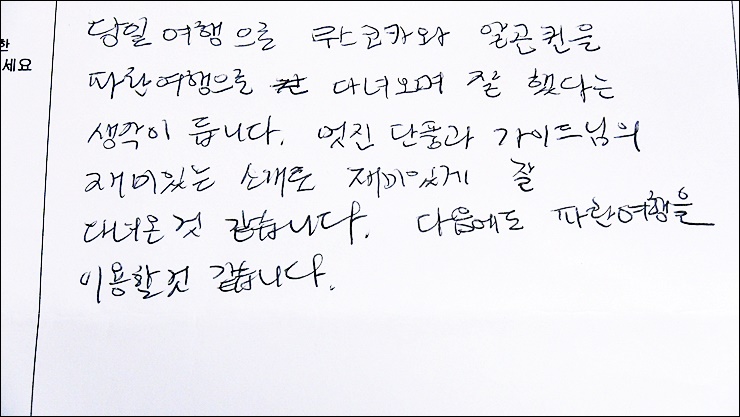 한
세요
당일여행으로 무스코카와 알곤퀸을
파란여행으로 다녀오며 잘 했다는
생각이 듭니다. 멋진 단풍과 가이드님의
재미있는 소개로 재미있게 잘
다녀온 것 같습니다. 다음에도 파란여행을
이용할것 같습니다.